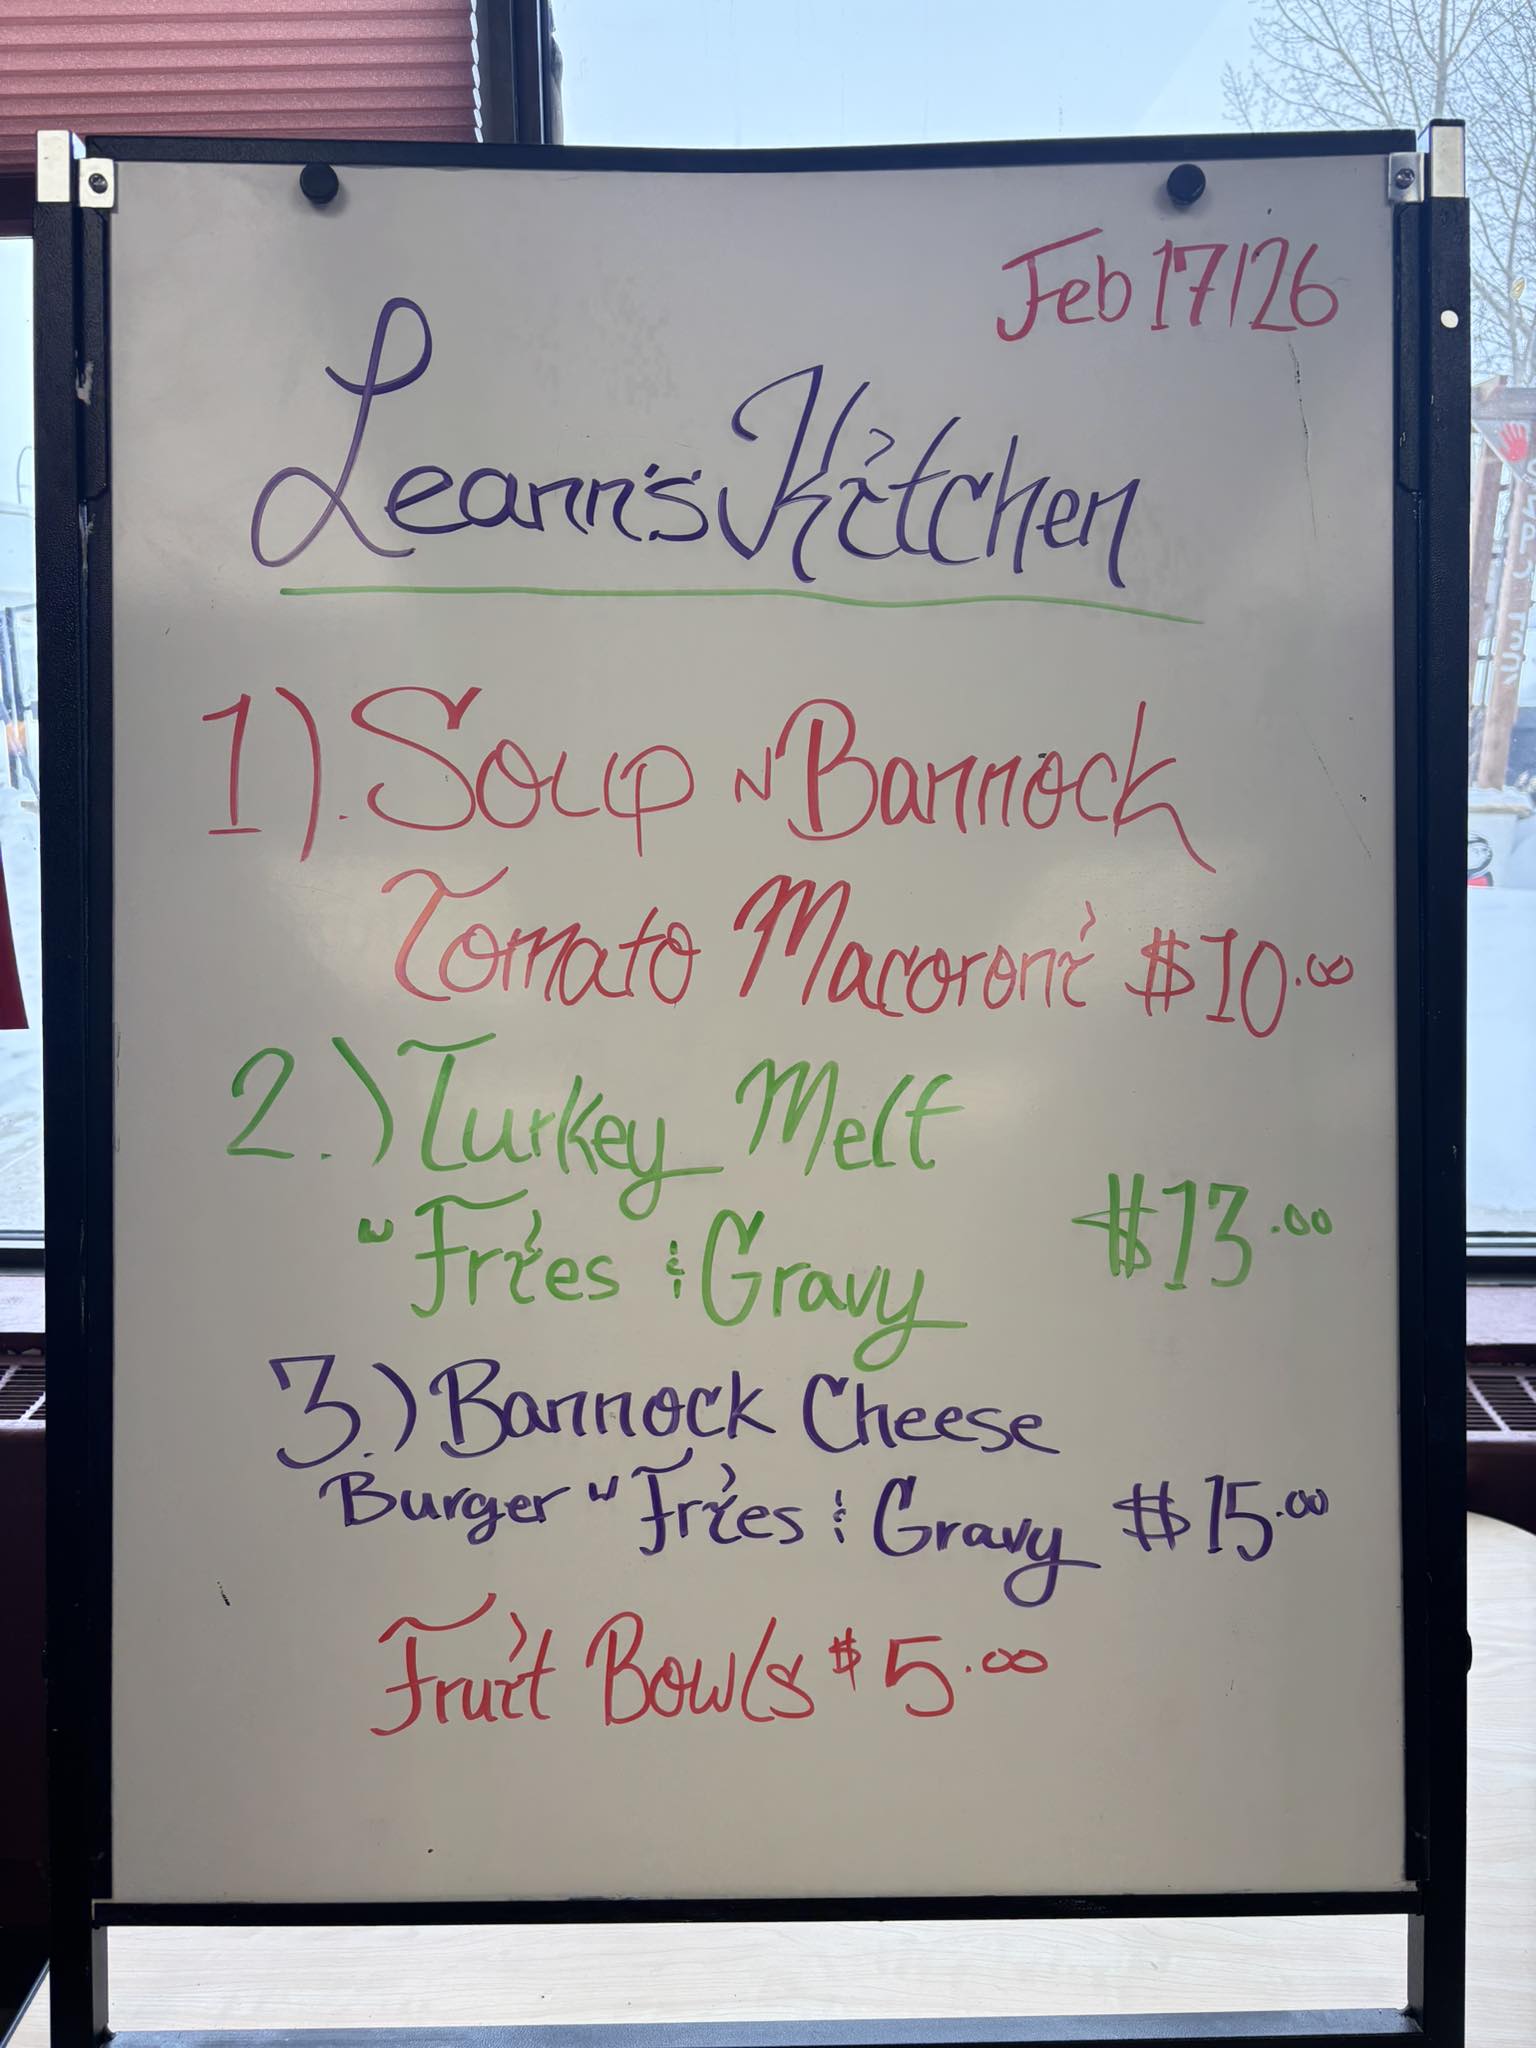 Feb 17/26
Leann's Kitchen
1). Soup N Bannock
Tomato Macoroni $10.00
2.) Turkey Melt
w Fries & Gravy $13.00
3.) Bannock Cheese
Burger w Fries & Gravy $15.00
Fruit Bowls $5.00